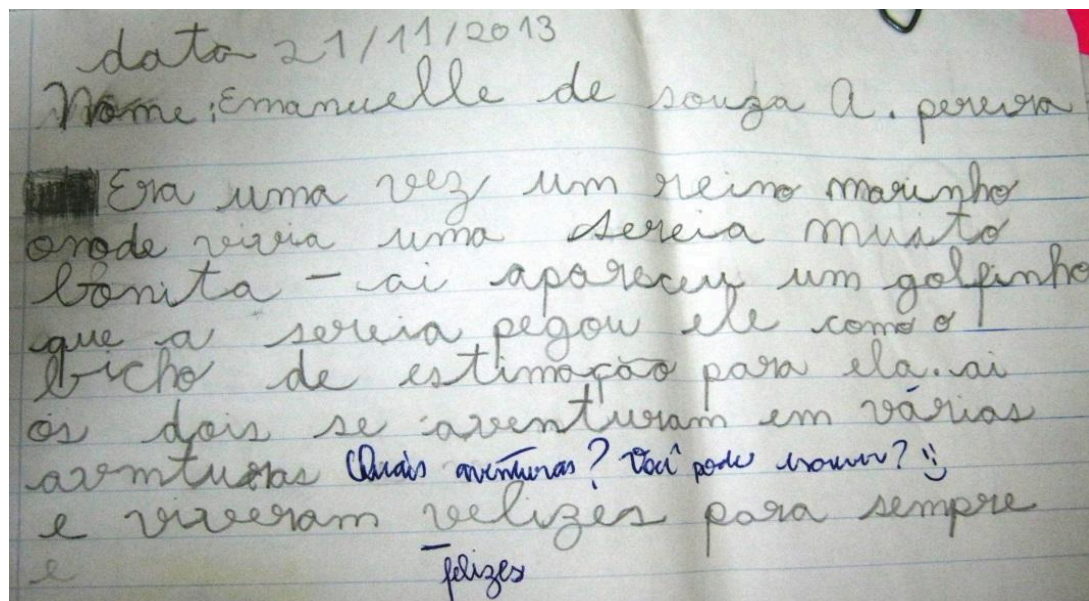 data 21/11/2013
Nome: Emanuelle de souza A. pereira
Era uma vez um reino marinho
onode vivia uma sereia muito
bonita - ai apareceu um golfinho
que a sereia pegou ele como o
bicho de estimação para ela. ai
os dois se aventuram em várias
aventuras Quais aventuras? Você pode escrever? :)
e viveram velizes para sempre
e felizes